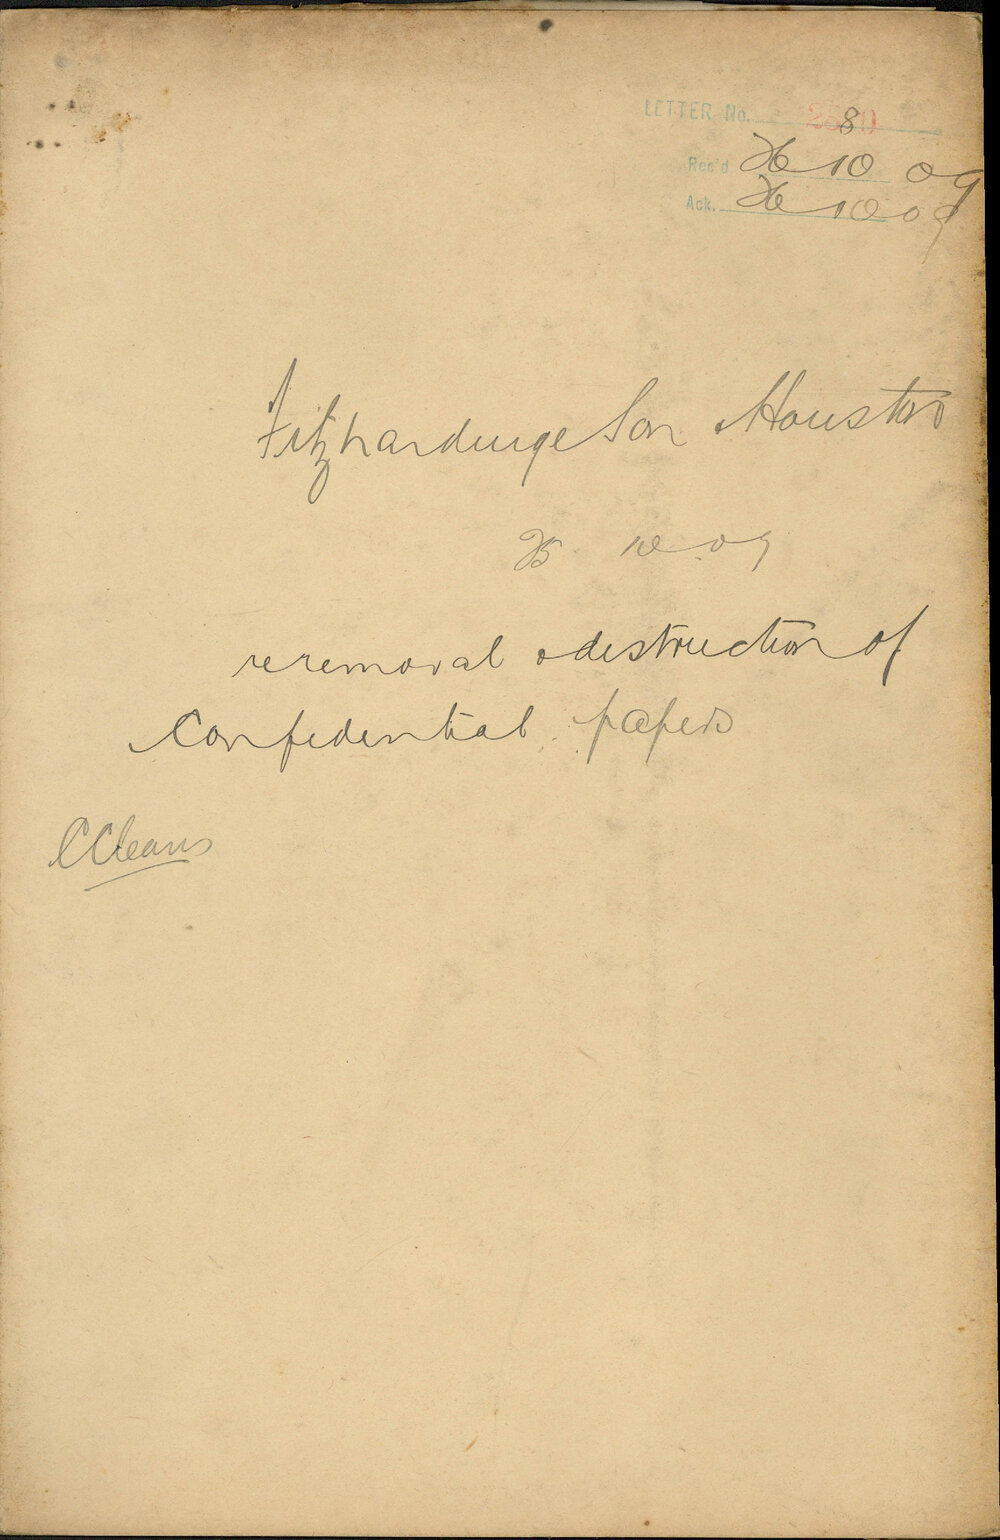 LETTER No. 2880
Rec'd 26 10 09
Ack. 26 10 09
Fitzhardinge Son Houston
25 10.09
re removal & destruction of
Confidential papers